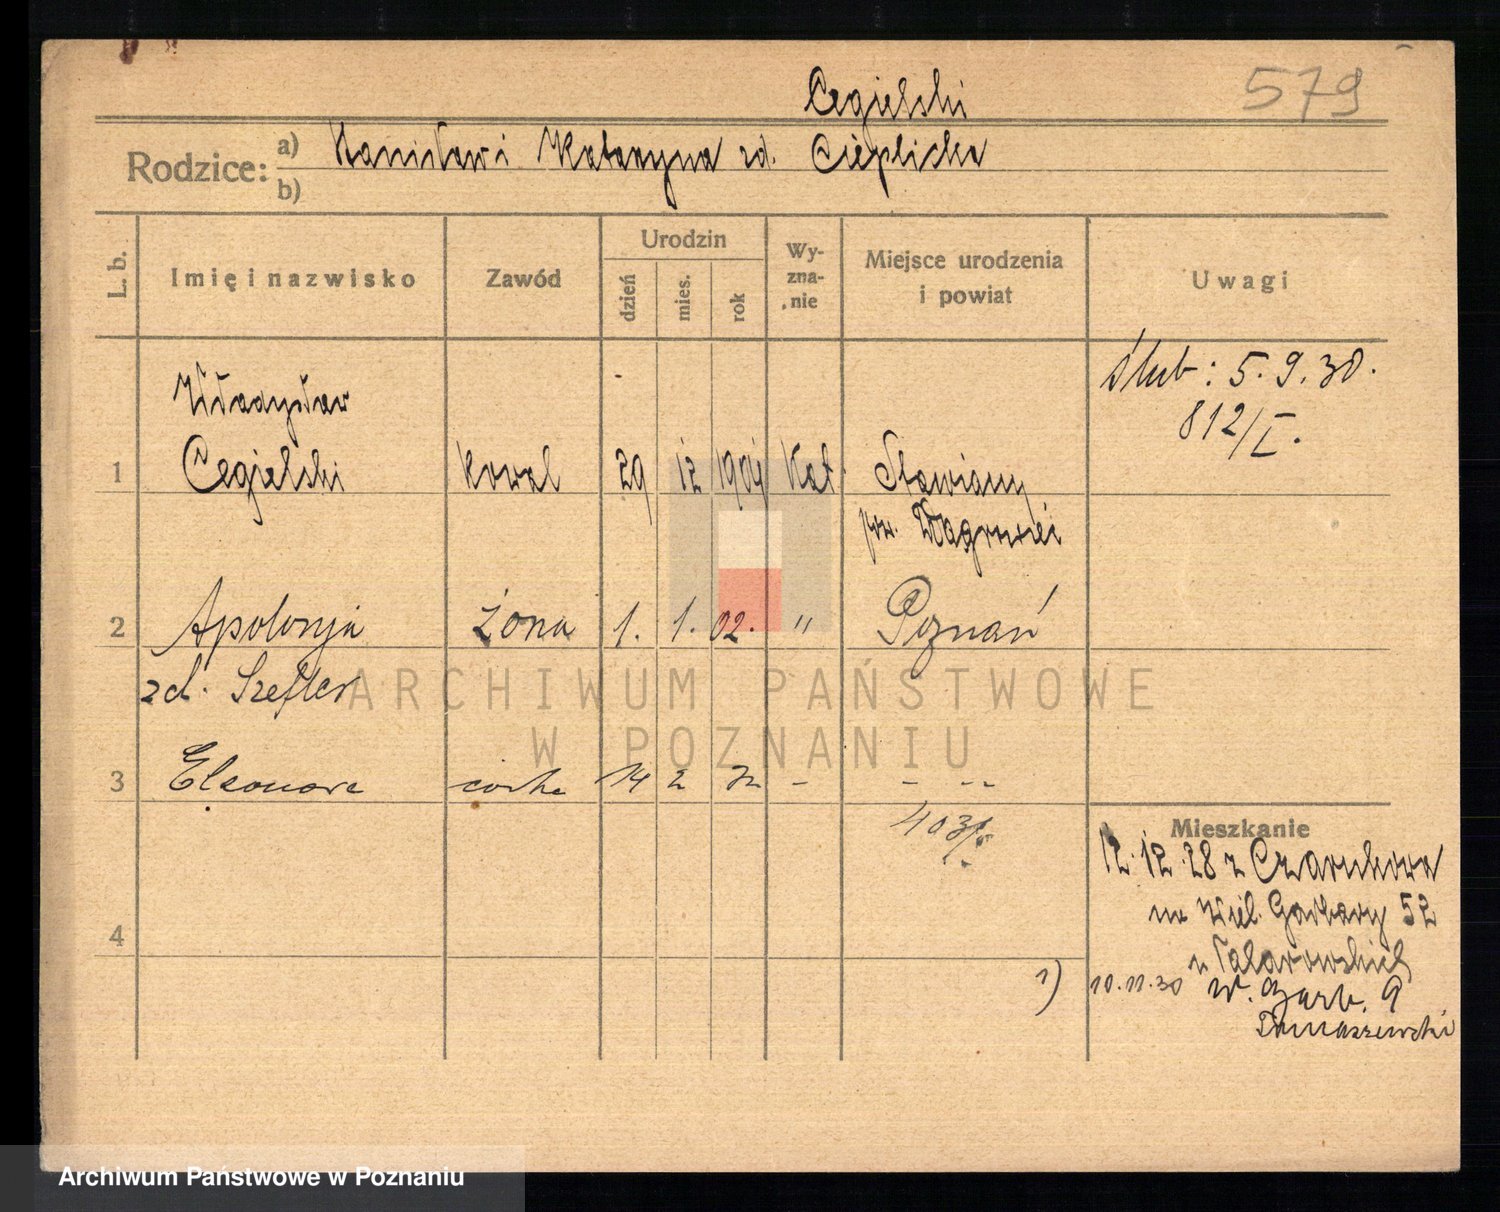 Cegielski
579
Rodzice: a) Stanisław i Katarzyna zd. Cieplicka
b)
L. b.
Imię i nazwisko
Zawód
Urodzin
dzień
mies.
rok
Wy-
zna-
nie
Miejsce urodzenia
i powiat
Uwagi
Ślub: 5.9.30.
812/I.
Władysław
1 Cegielski kowal 29 12 1904 Kat. Stawiany
pow. Wągrowiec
2 Apolonja żona 1. 1. 02. " Poznań
zd. Szefler
3 Eleonora córka 14 2 32 - - --
403/
Mieszkanie
12.12.28 z Czarnkowa
na Wiel. Garbary 52
4
u
1) 10.11.30 W. Garb. 9
Tomaszewski
ARCHIWUM PAŃSTWOWE
W POZNANIU
Archiwum Państwowe w Poznaniu